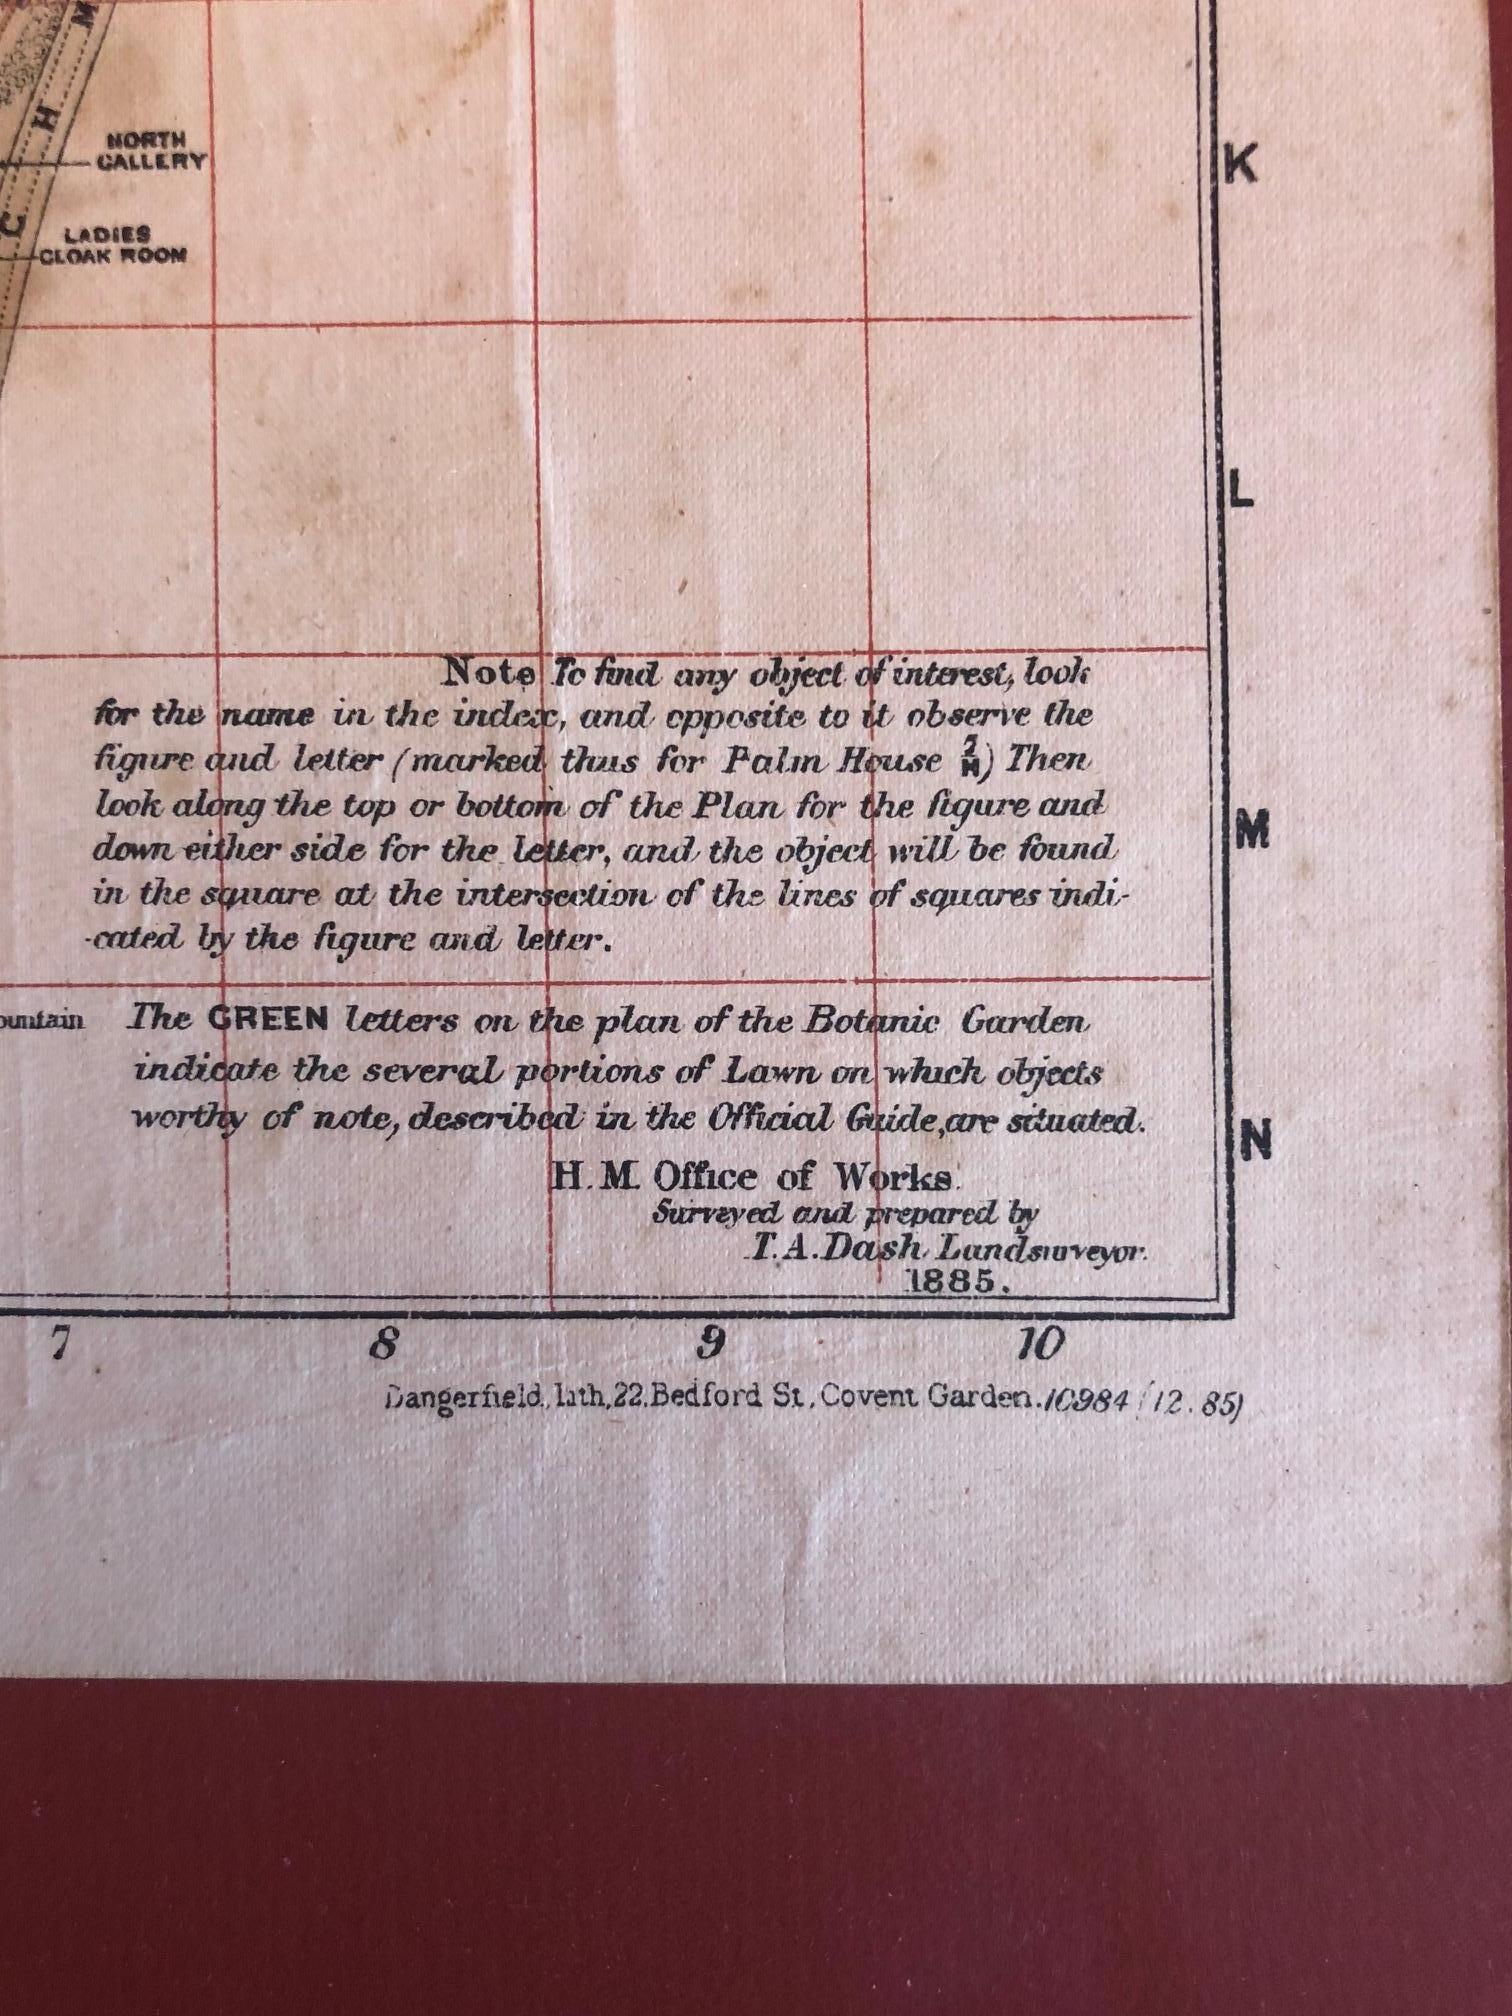 M
H
NORTH
GALLERY
K
C
LADIES
CLOAK ROOM
L
Note To find any object of interest, look
for the name in the index, and opposite to it observe the
figure and letter (marked thus for Palm House 7/H) Then
look along the top or bottom of the Plan for the figure and
down either side for the letter, and the object will be found
in the square at the intersection of the lines of squares indi-
-cated by the figure and letter.
M
ountain
The GREEN letters on the plan of the Botanic Garden
indicate the several portions of Lawn on which objects
worthy of note, described in the Official Guide, are situated.
N
H. M. Office of Works.
Surveyed and prepared by
T. A. Dash Landsurveyor.
1885.
7 8 9 10
Dangerfield, lith, 22, Bedford St, Covent Garden. 10984 (12.85)